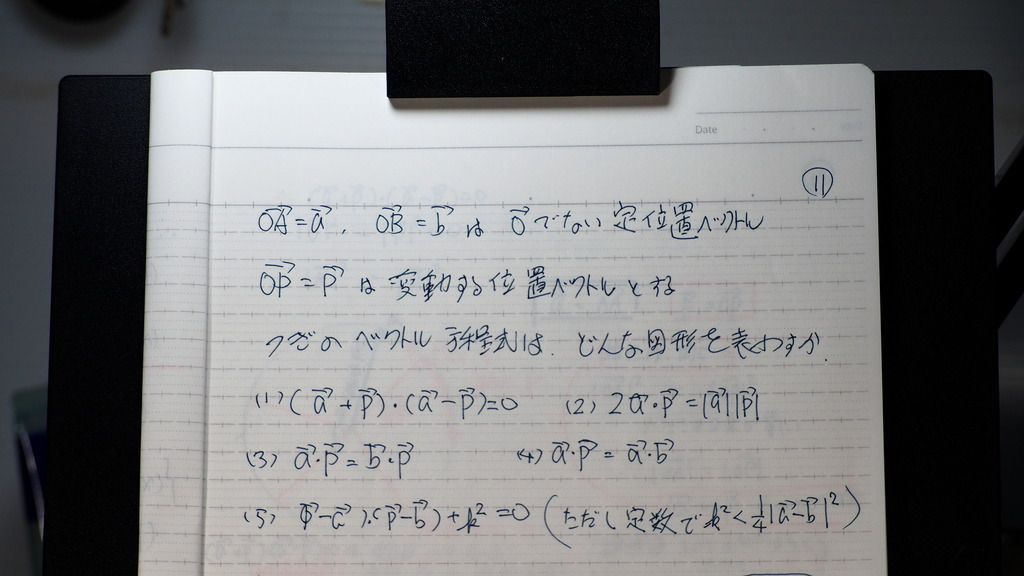 Date
⑪
OA→=a→, OB→=b→ は 0→でない定位置ベクトル
OP→=P→ は変動する位置ベクトルとする
つぎのベクトル方程式は、どんな図形を表わすか.
(1) (a→+P→)・(a→-P→)=0 (2) 2a→・P→=|a→||P→|
(3) a→・P→=b→・P→ (4) a→・P→=a→・b→
(5) (P→-a→)・(P→-b→)+k²=0 (ただし定数でk²<1/4|a→-b→|²)